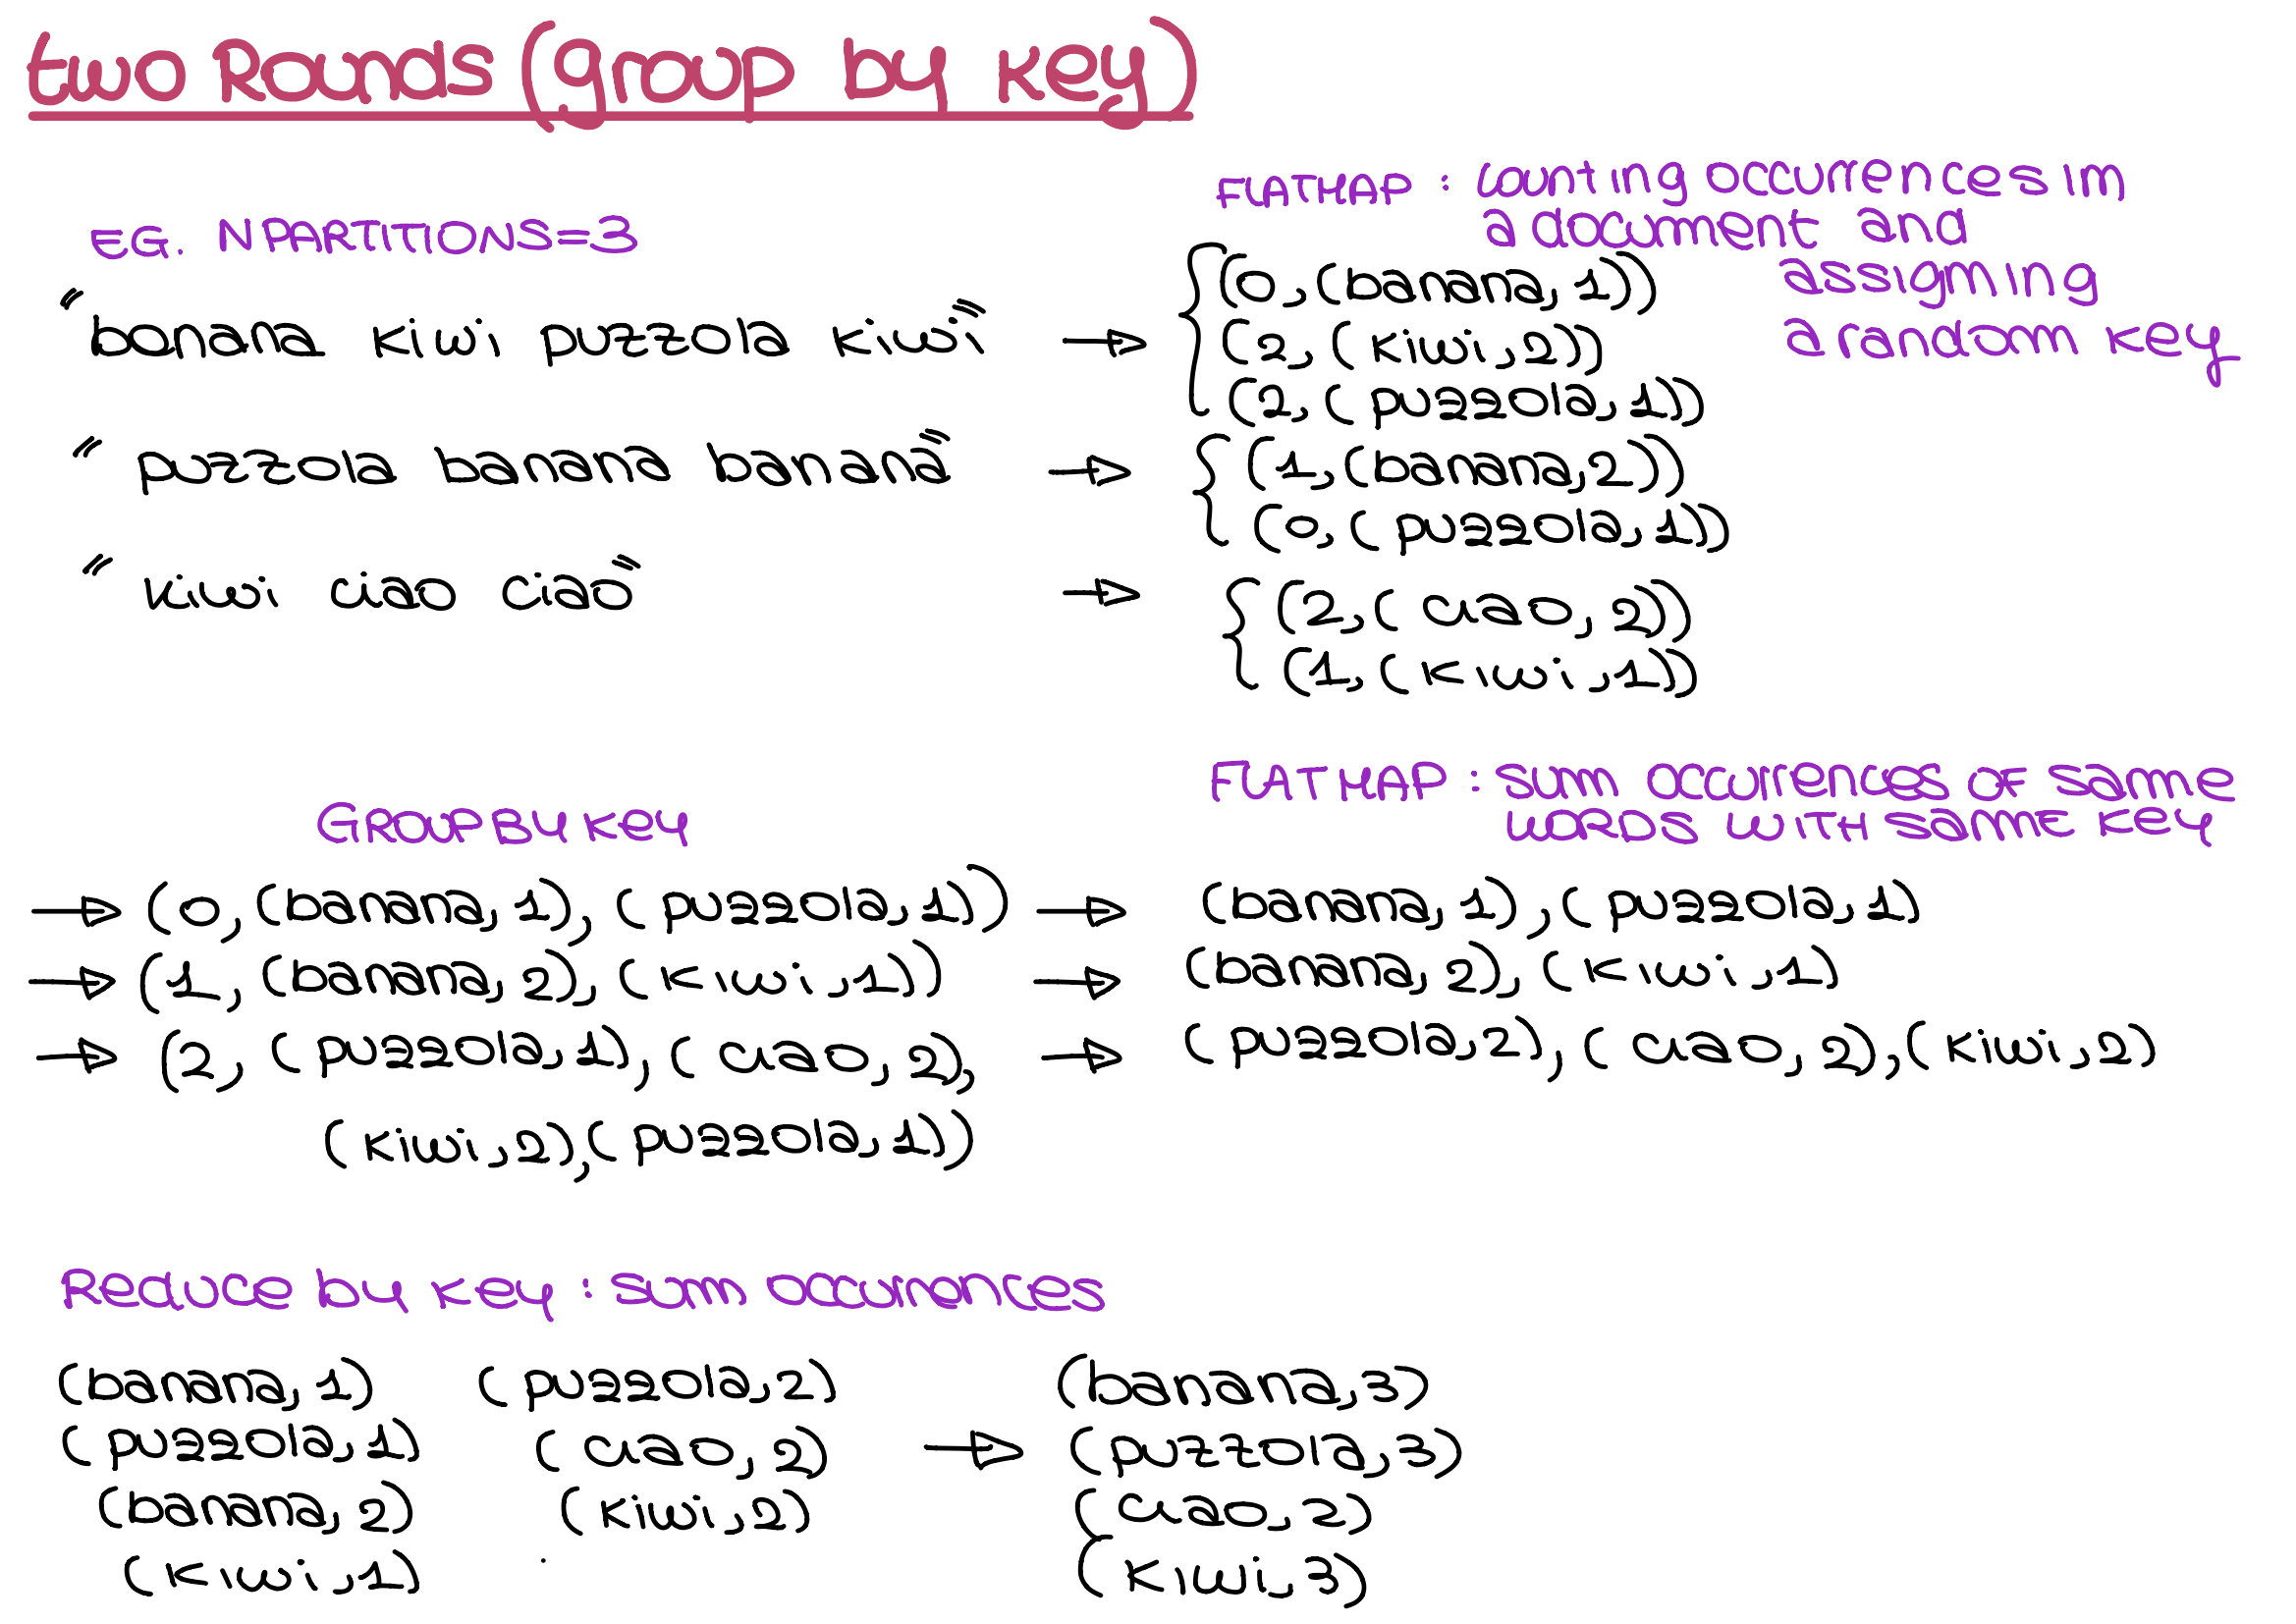 two Rounds (group by key)
FLATMAP : counting occurrences in
a document and
assigning
a random key
EG. NPARTITIONS=3
"banana kiwi puzzola kiwi" → { (0, (banana, 1))
(2, (kiwi, 2))
(2, (puzzola, 1))
"puzzola banana banana" → { (1, (banana, 2))
(0, (puzzola, 1))
"kiwi ciao ciao" → { (2, (ciao, 2))
(1, (kiwi, 1))
GROUP BY KEY
FLATMAP : sum occurrences of same
words with same key
→ (0, (banana, 1), (puzzola, 1)) → (banana, 1), (puzzola, 1)
→ (1, (banana, 2), (kiwi, 1)) → (banana, 2), (kiwi, 1)
→ (2, (puzzola, 1), (ciao, 2), → (puzzola, 2), (ciao, 2), (kiwi, 2)
(kiwi, 2), (puzzola, 1))
Reduce by key : sum occurrences
(banana, 1) (puzzola, 2) (banana, 3)
(puzzola, 1) (ciao, 2) → (puzzola, 3)
(banana, 2) (kiwi, 2) (ciao, 2)
(kiwi, 1) (kiwi, 3)